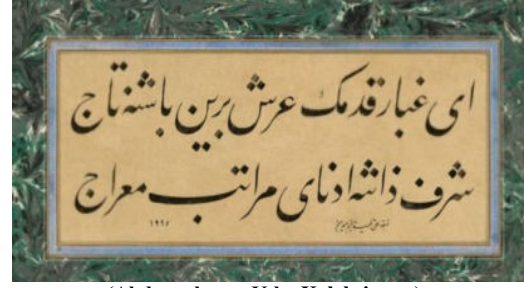 ای غبار قدمک عرش برین باشنه تاج
شرف ذاتنه ادنای مراتب معراج
١٩٩٥